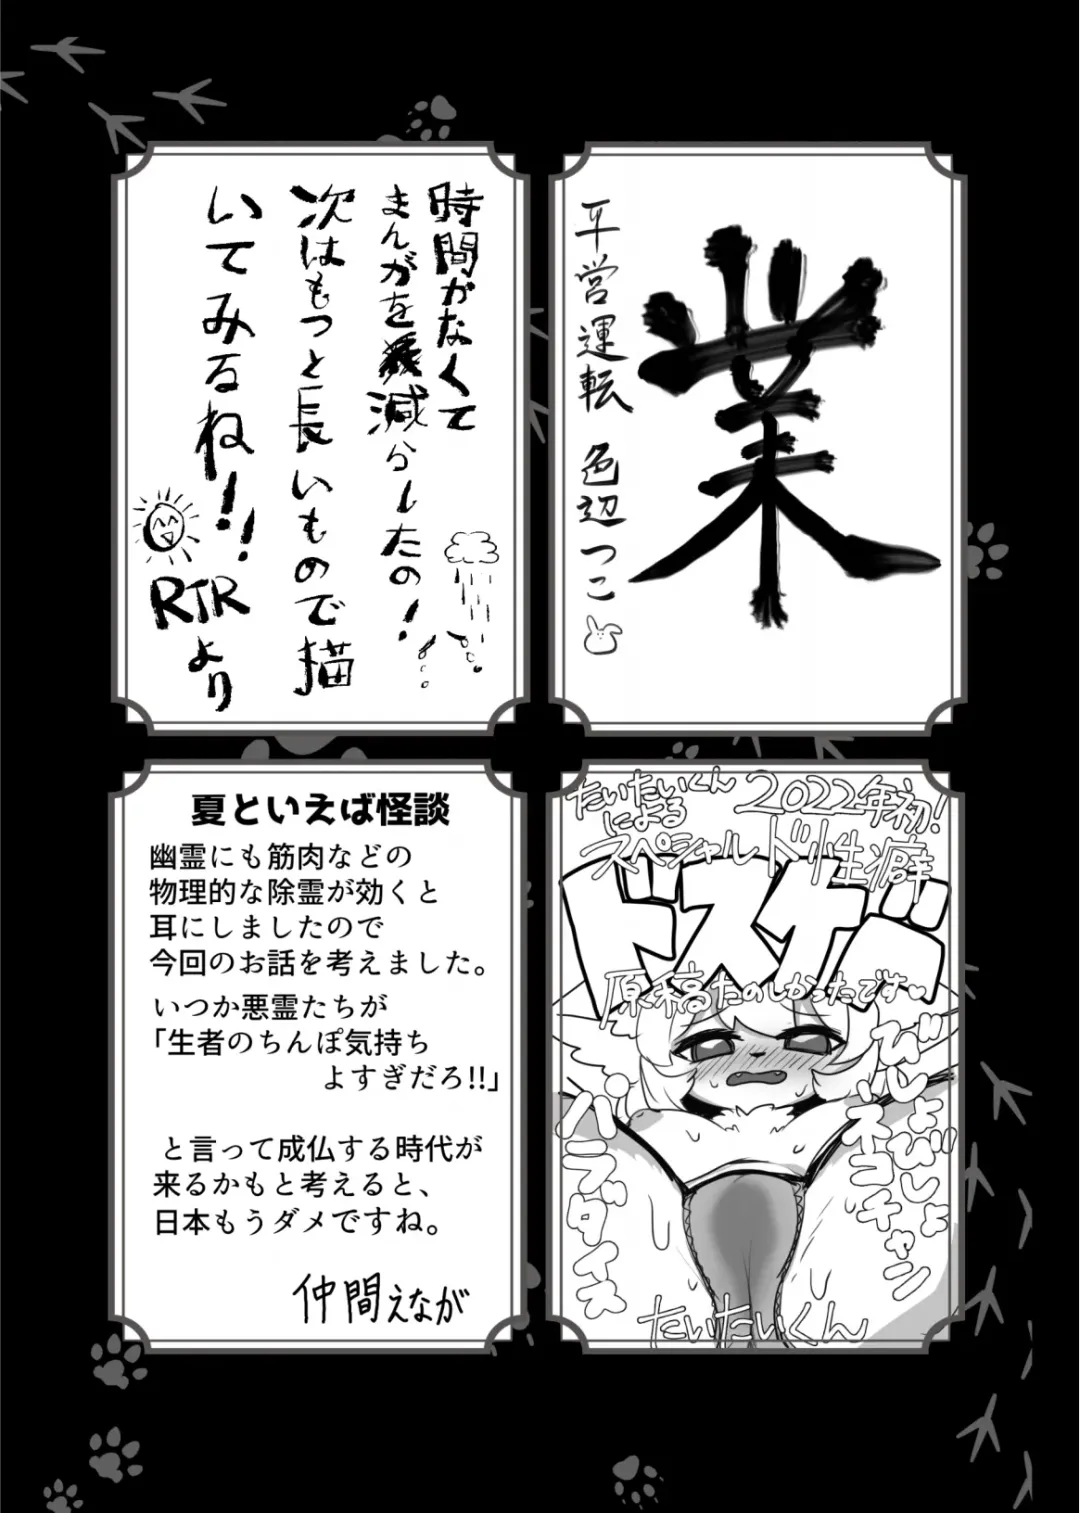 業
平営運転 色辺つこ
時間がなくて
まんがを減らしたの!
次はもっと長いもので描
いてみるね!!
RTRより
2022年初!
たいたいくん
による
スペシャルド性癖
ドスケベ
原稿たのしかったです♡
びしょびしょ
ネコチャン
パラダイス
たいたいくん
夏といえば怪談
幽霊にも筋肉などの
物理的な除霊が効くと
耳にしましたので
今回のお話を考えました。
いつか悪霊たちが
「生者のちんぽ気持ち
よすぎだろ!!」
と言って成仏する時代が
来るかもと考えると、
日本もうダメですね。
仲間えなが